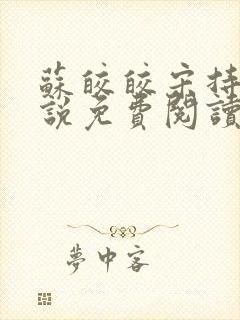 蘇皎皎宋持
說免費閱讀
夢中客